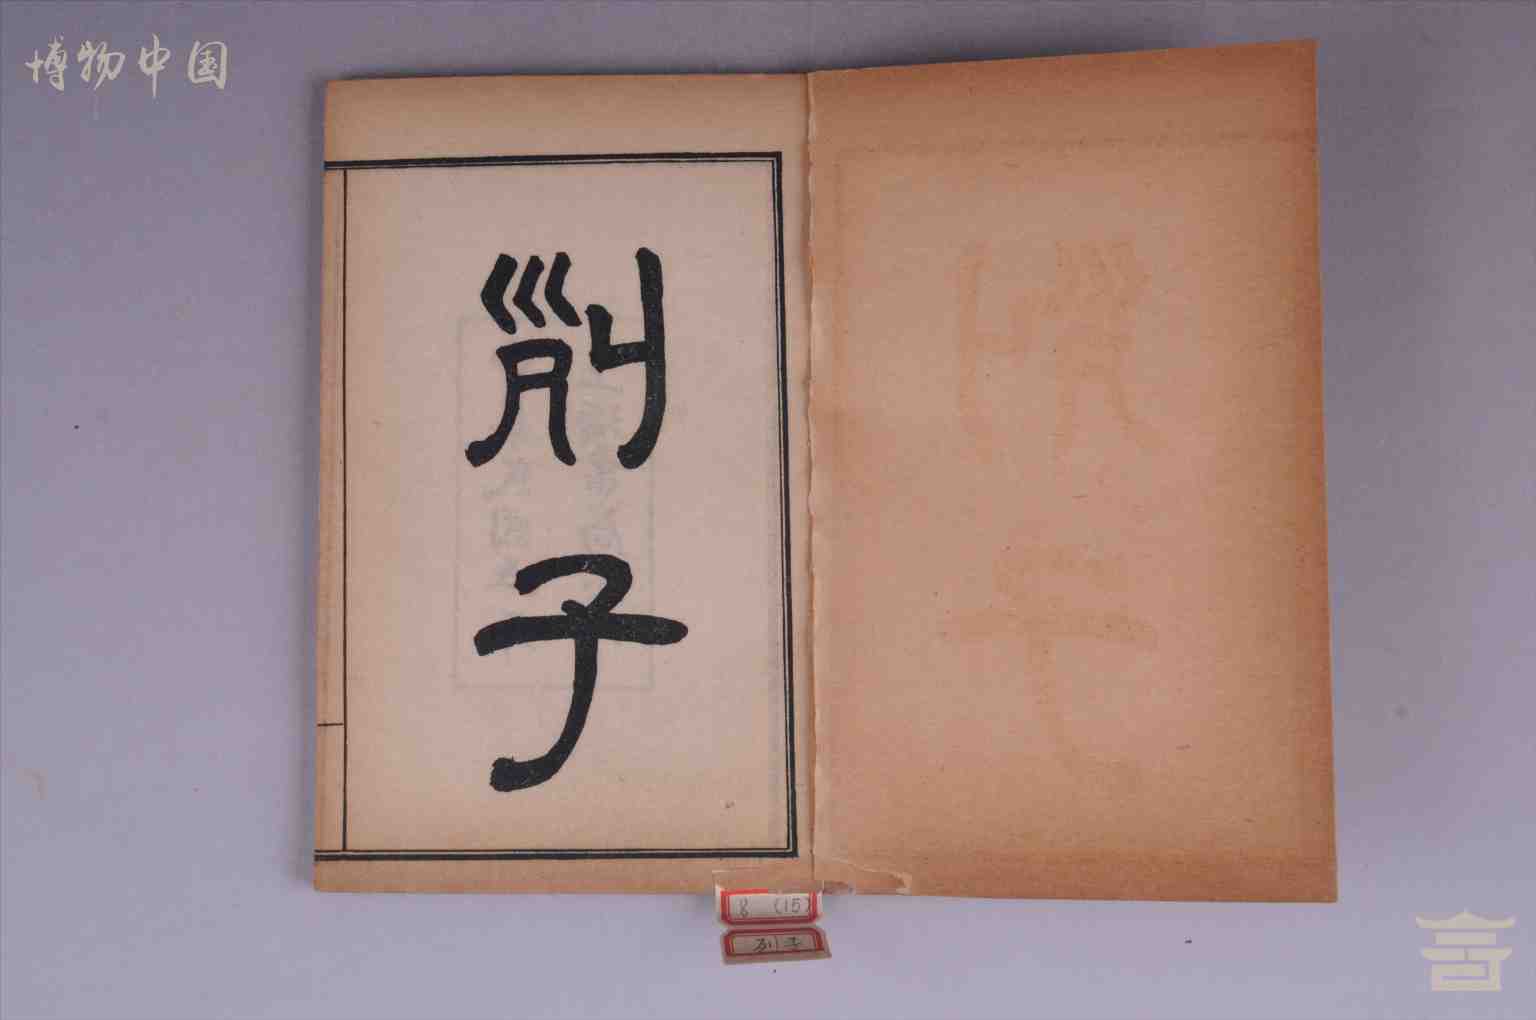 博物中国
列
子
8 (15)
列子